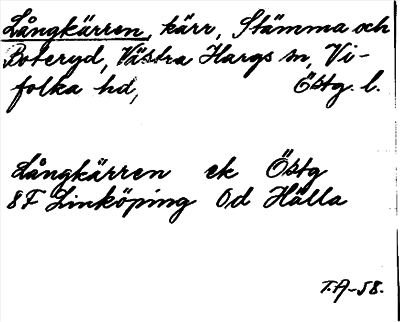 Långkärren, kärr, Stämma och
Boteryd, Västra Hargs sn, Vi-
folka hd, Östg. l.
Långkärren ek Östg
8F Linköping Od Hälla
T.A-58.